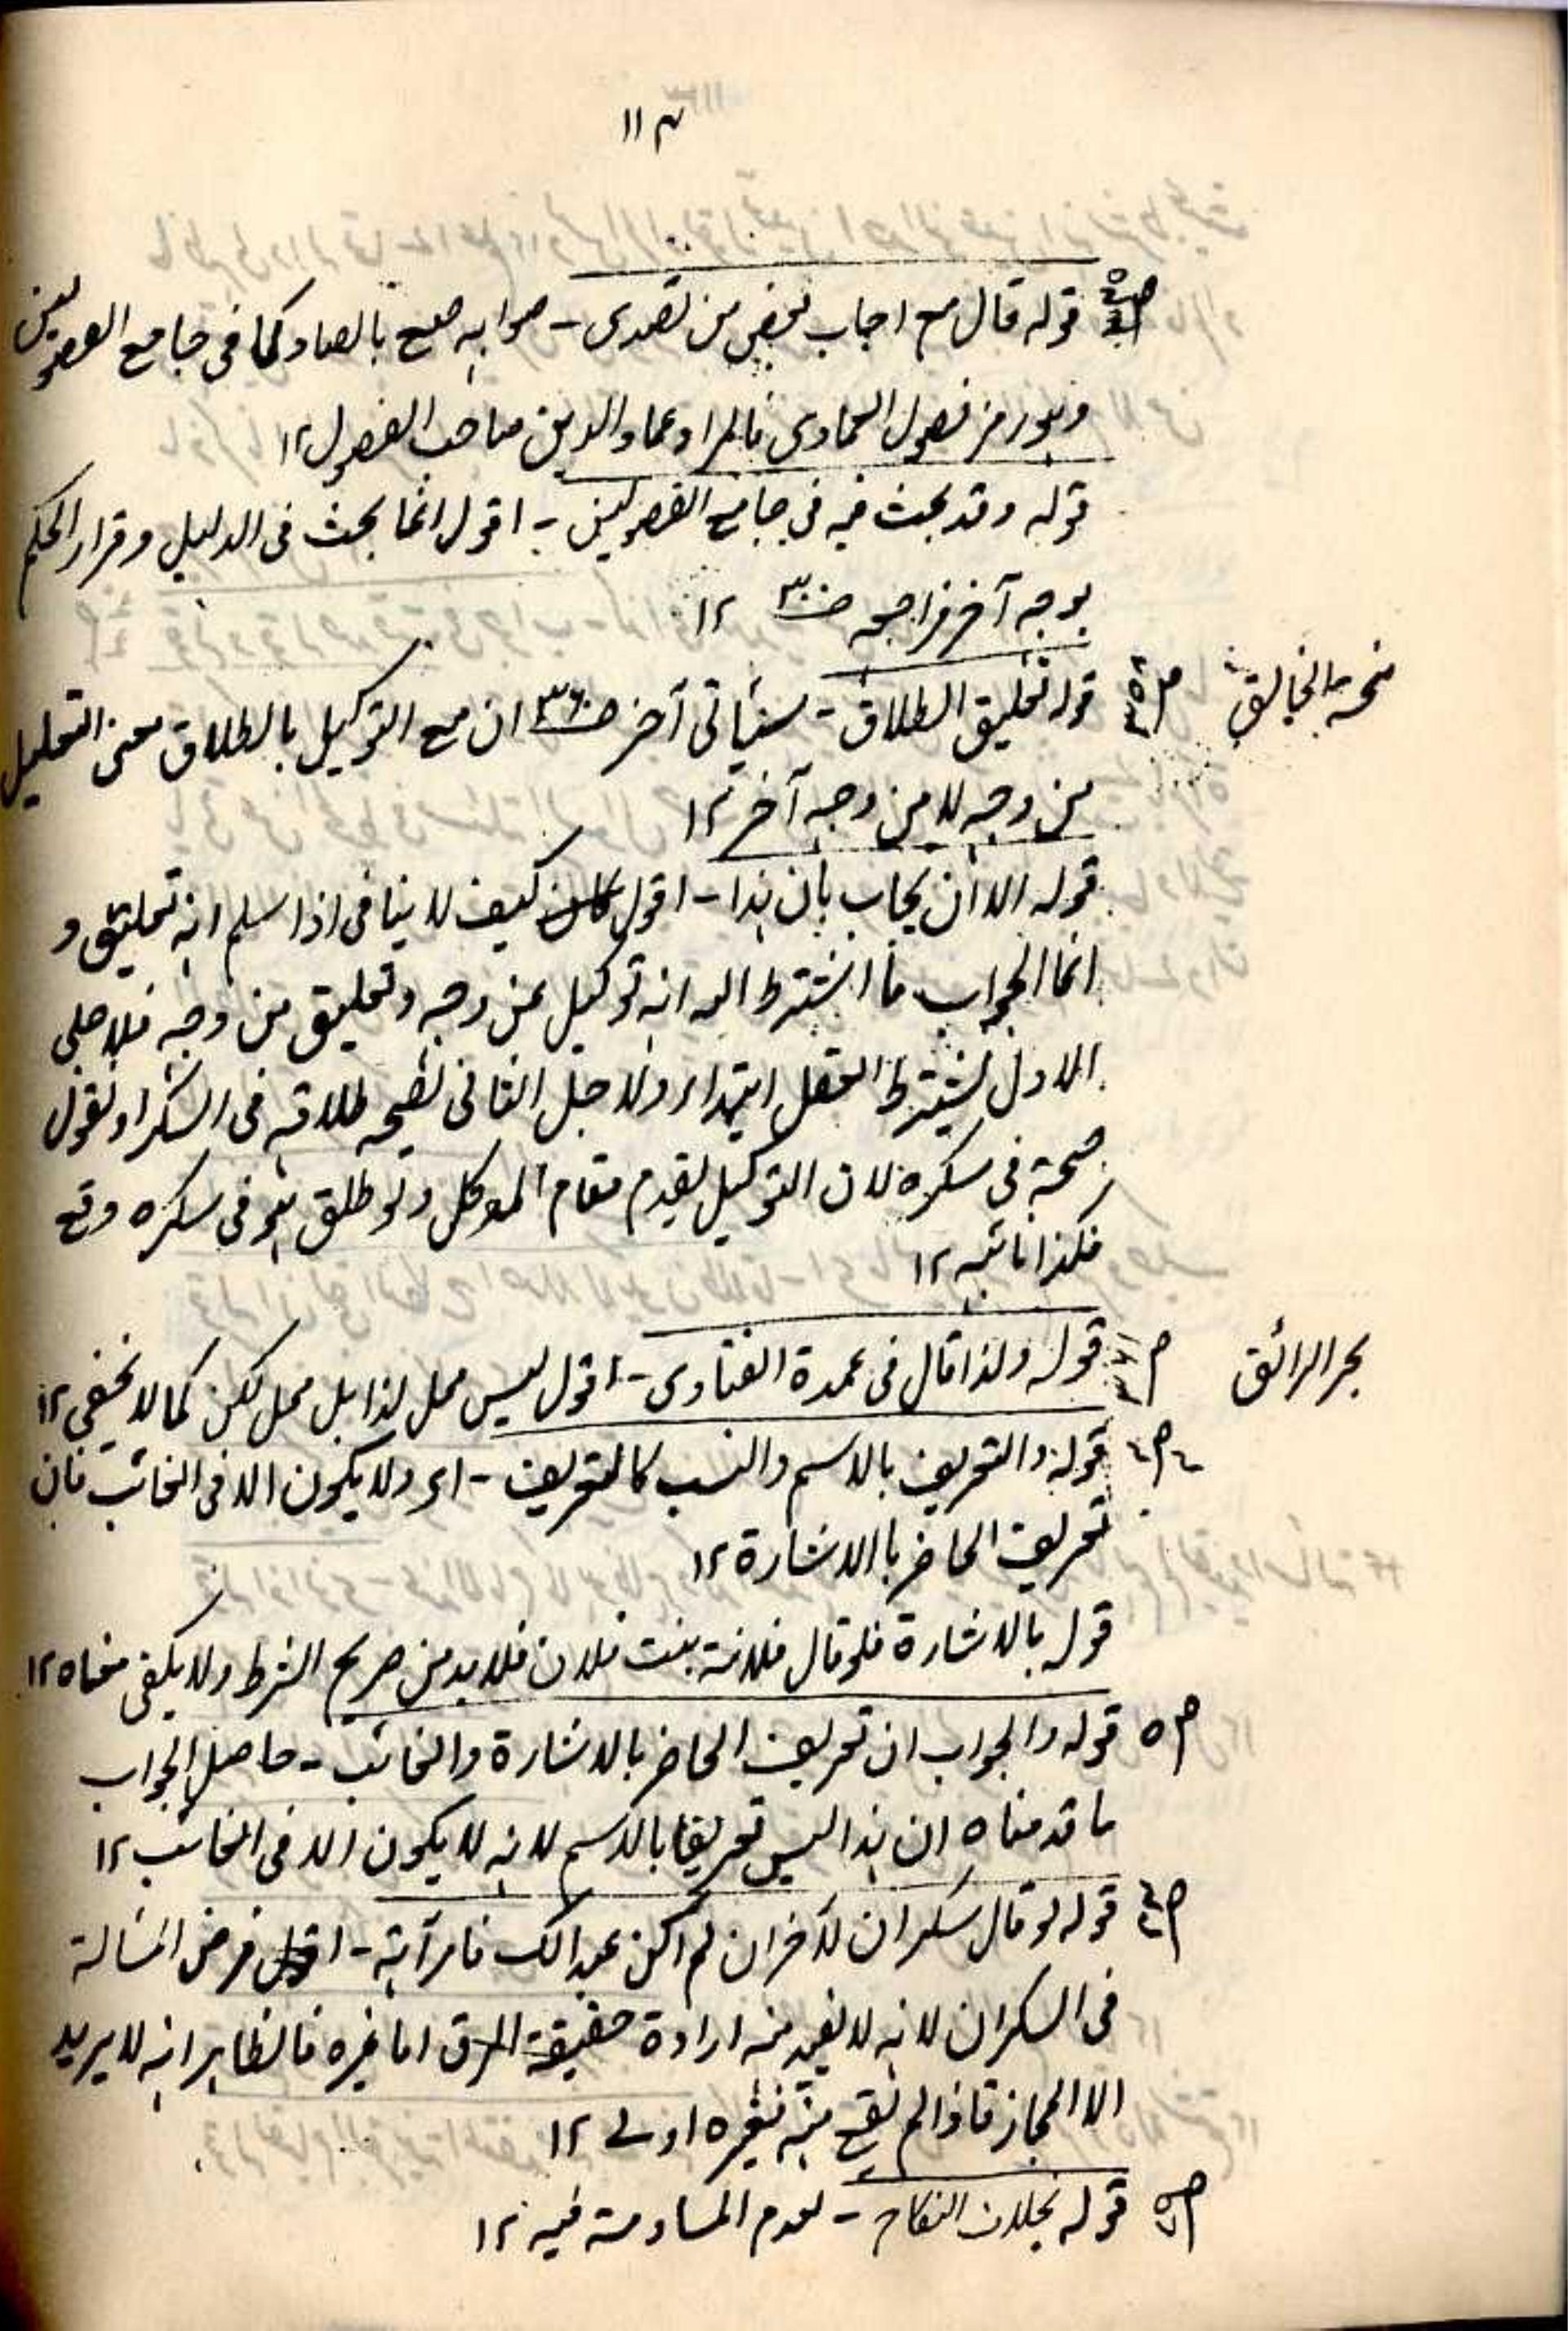 ١١٣
قوله قال مع اجاب بعض من تصدى - صوابه صع بالصاد كما في جامع الفصولين
وهو رمز فصول العمادى فالمراد عماد الدين صاحب الفصول ١٢
قوله وقد بحث فيه في جامع الفصولين - اقول انما بحث فى الدليل وقرار الحكم
بوجه آخر فراجعه صـ٣٠ ١٢
منحة الخالق قوله تعليق الطلاق - سيأتى آخر صـ٣٦٠ ان مع التوكيل بالطلاق معنى التعليل
من وجه لا من وجه آخر ١٢
قوله الا ان يجاب بان هذا - اقول كيف لا ينافى اذا سلم انه تعليق و
انما الجواب ما انه توكيل من وجه وتعليق من وجه فلاجل
الاول يشترط العقل ابتداء ولاجل الثانى نصحح طلاقه فى السكر او نقول
صحة فى سكره لان التوكيل يقوم مقام الموكل ولو طلق هو فى سكره وقع
فكذا نائبه ١٢
بحر الرائق قوله ولذا قال فى عمدة الفتاوى - اقول ليس محل لذا بل محل لكن كما لا يخفى ١٢
قوله والتعريف بالاسم والنسب كالتعريف - اى ولا يكون الا فى الغائب فان
تعريف الحاضر باالاشارة ١٢
قوله بالاشارة فلو قال فلانة بنت فلان فلا بد من صريح الشرط ولا يكفى معناه ١٢
ص٥ قوله والجواب ان تعريف الحاضر بالاشارة والغائب - حاصل الجواب
ما قدمناه ان هذا ليس تعريفا بالاسم لانه لا يكون الا فى الغائب ١٢
قوله لو قال سكران لآخر ان لم اكن عبدالك فامرآته - اقول فرض المسالة
فى السكران لانه لا يبعد منه ارادة حقيقة الرق اما غيره فالظاهر انه لا يريد
الا المجاز فاذا لم يقع منه فغيره اولى ١٢
قوله بخلاف النكاح - لعدم المساومة فيه ١٢